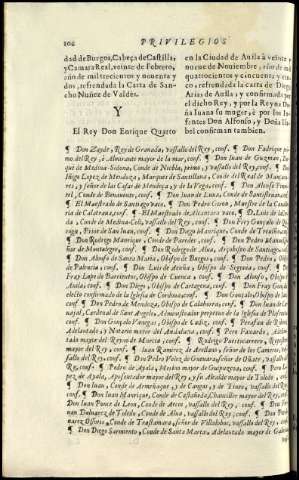 102 PRIVILEGIOS
dad de Burgos, Cabeça de Castilla,
y Camara Real, veinte de Febrero,
año de mil trecientos y nouenta y
dos, refrendada la Carta de San-
cho Nuñez de Valdes.
Y
El Rey Don Enrique Quarto
en la Ciudad de Auila à veinte y
nueue de Nouiembre, año de mil
quatrocientos y cincuenta y
co, refrendada la carta de Diego
Arias de Auila, y confirmada por
el dicho Rey, y por la Reyna Do-
ña Iuana su muger, y por los In-
fantes Don Alfonso, y Doña Isa-
bel confirman tambien.
¶ Don Zayde, Rey de Granada, vassallo del Rey, conf. ¶ Don Fadrique pri-
mo del Rey, è Almirante mayor de la mar, conf. ¶ Don Iuan de Guzman, Du-
que de Medina-Sidonia, Conde de Niebla, primo, y vassallo del Rey, conf. ¶ Don
Iñigo Lopez de Mendoça, Marques de Santillana, Conde del Real de Mançana-
res, y señor de las Casas de Mendoça, y de la Vega, conf. ¶ Don Alonso
tel, Conde de Benauente, conf. ¶ Don Iuan de Luna, Conde de Santisteuan, conf.
¶ El Maestrado de Santiago vaco. ¶ Don Pedro Giron, Maestre de la Caualle-
ria de Calatraua, conf. ¶ El Maestrado de Alcantara vaco. ¶ D. Luis de la Cer-
da, Conde de Medina-Celi, vassallo del Rey, conf. ¶ Don Frey Gonçalo de Qui-
roga, Prior de San Iuan, conf. ¶ Don Diego Manrique, Conde de Treuiño,
¶ Don Rodrigo Manrique, Conde de Paredes, conf. ¶ Don Pedro
ñor de Montalegre, conf. ¶ Don Rodrigo de Alçobispo de Santiago,
¶ Don Alonso de Santa Maria, Obispo de Burgos, conf. ¶ Don Pedro, Obispo
de Palencia, conf. ¶ Don Luis de Acuña, Obispo de Segouia, conf. ¶ Don
Fray Lope de Barrientos, Obispo de Cuenca, conf. ¶ Don Alonso, Obispo de
Auila, conf. ¶ Don Diego, Obispo de Cartagena, conf. ¶ Don Fray Gonçalo
electo confirmado de la Iglesia de Cordoua, conf. ¶ Don Gonçalo, Obispo de
¶ Don Pedro de Mendoça, Obispo de Calahorra, conf. ¶ Don Iuan
uajal, Cardenal de Sant Angelo, Administrador perpetuo de la Iglesia de Plasencia,
conf. ¶ Don Gonçalo Vanegas, Obispo de Cadiz, conf. ¶ Perafan de Ribera,
Adelantado, y Notario mayor del Andaluzia, conf. ¶ Pero Faxardo, Adelan-
tado mayor del Reyno de Murcia, conf. ¶ Rodrigo Portocarrero, Repostero
mayor del Rey, conf. ¶ Iuan Ramirez de Arellano, señor de los Cameros, vas-
sallo del Rey, conf. ¶ Don Pedro Velez de Gueuara, señor de Oñate, vassallo del
Rey, conf. ¶ Pedro de Ayala, Merino mayor de Guipuzcoa, conf. ¶ Pero
pez de Ayala, Aposentador mayor del Rey, y su Alcalde mayor de Toledo, conf.
¶ Don Iuan, Conde de Armeñaque, y de Cargas, y de Tineo, vassallo del Rey,
conf. ¶ Don Iuan Manrique, Conde de Castañeda, Chanciller mayor del Rey, conf.
Don Iuan Ponce de Leon, Conde de Arcos, vassallo del Rey, conf. ¶ Don Fer-
nan Daluarez de Toledo, Conde de Alua, vassallo del Rey; conf. ¶ Don Pedro
uarez Osorio, Conde de Trastamara, señor de Villalobos, vassallo del Rey, conf.
¶ Don Diego Sarmiento, Conde de Santa Marta, Adelantado mayor de Galizia